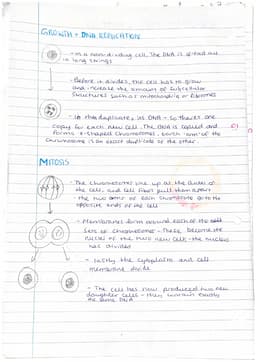 GROWTH + DNA REPLICATION
- In a non-dividing cell, the DNA is spread out
in long strings
- Before it divides, the cell has to grow
and increase the amount of subcellular
structures such as mitochondria or ribosomes
- It then duplicates its DNA - so there's one
copy for each new cell. The DNA is copied and
forms x-shaped chromosomes. each 'arm' of the
chromosome is an exact duplicate of the other.
MITOSIS
- The chromosomes line up at the center of
the cell, and cell fibres pull them apart.
- the two arms of each chromosome go to the
opposite ends of the cell
- Membranes form around each of the
sets of chromosomes - These become the
nuclei of the two new cells - the nucleus
has divided
- Lastly the cytoplasm and cell
membrane divide
- The cell has now produced two new
daughter cells - they contain exactly
the same DNA